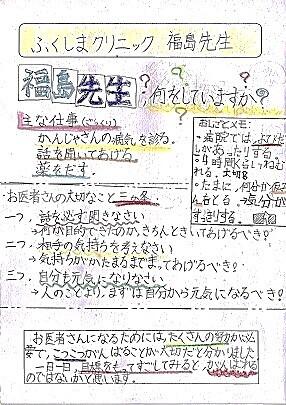 ふくしまクリニック 福島先生
福島先生?何をしていますか?
主な仕事(ざっくり)
かんじゃさんの病気を診る。
話を聞いてあげる。
薬をだす。
おしごとメモ:
・病院では
しかあ たりする。
・4時間くらいねむ
れる。大切
・たまに、何分か
んをとる→気分が
すっきりする。
・お医者さんの大切なこと三ヵ条
一つ、話を必ず聞きなさい
→何が自分でできたのか、きちんときいてあげるべき!
二つ、相手の気持ちを考えなさい
→気持ちがかたまるまでまってあげるべき!
三つ、自分も元気になりなさい
→人のことより、まずは自分から元気になるべき!
お医者さんになるためには、たくさんの努力が必
要で、こつこつがんばることが大切だと分かりました
一日一日、目標をもってすごしてみると、がんばれる
のではないかと思います。